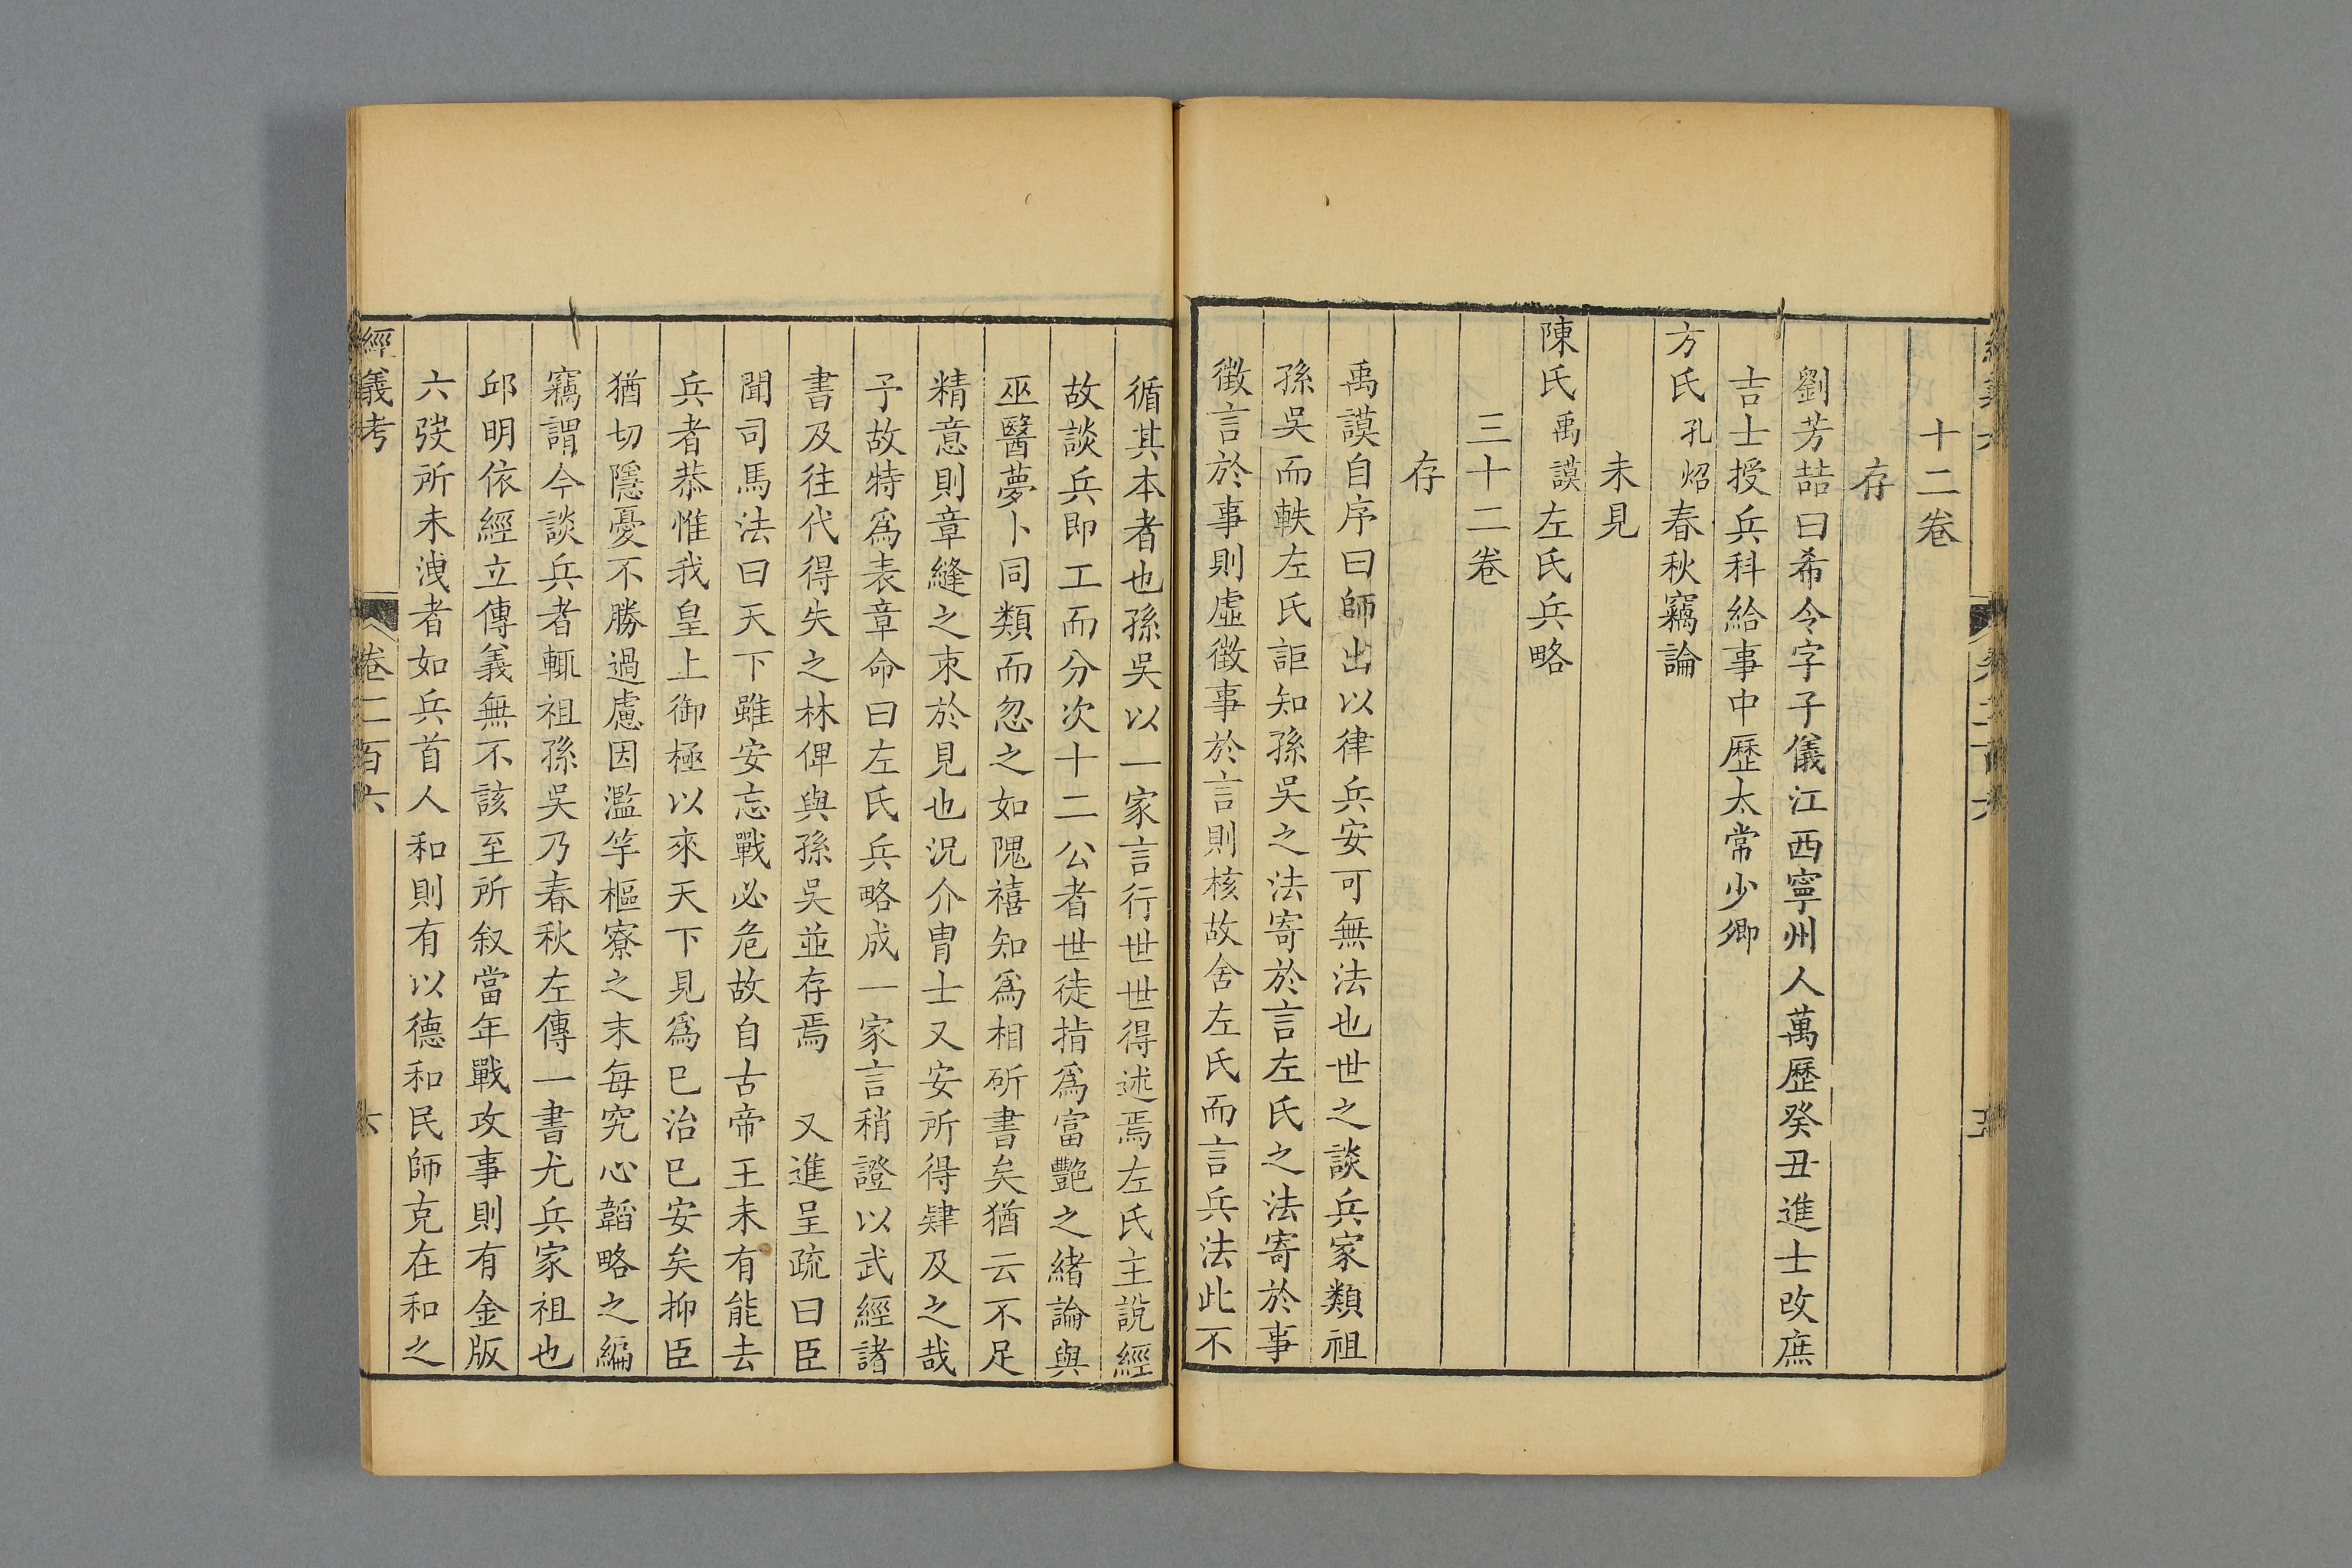 十二卷
存
劉芳喆曰希令字子儀江西寧州人萬歷癸丑進士改庶
吉士授兵科給事中歷太常少卿
方氏孔炤春秋竊論
未見
陳氏禹謨左氏兵略
三十二卷
存
禹謨自序曰師出以律兵安可無法也世之談兵家類祖
孫吳而軼左氏詎知孫吳之法寄於言左氏之法寄於事
徵言於事則虛徵事於言則核故舍左氏而言兵法此不
循其本者也孫吳以一家言行世世得述焉左氏主說經
故談兵即工而分次十二公者世徒指爲富艷之緒論與
巫醫夢卜同類而忽之如隗禧知爲相斫書矣猶云不足
精意則章縫之朿於見也況介胄士又安所得肄及之哉
予故特爲表章命曰左氏兵略成一家言稍證以武經諸
書及往代得失之林俾與孫吳並存焉　又進呈疏曰臣
聞司馬法曰天下雖安忘戰必危故自古帝王未有能去
兵者恭惟我皇上御極以來天下見爲巳治巳安矣抑臣
猶切隱憂不勝過慮因濫竽樞寮之末每究心韜略之編
竊謂今談兵者輒祖孫吳乃春秋左傳一書尤兵家祖也
邱明依經立傳義無不該至所叙當年戰攻事則有金版
六弢所未洩者如兵首人和則有以德和民師克在和之
經義考
卷二百六
六